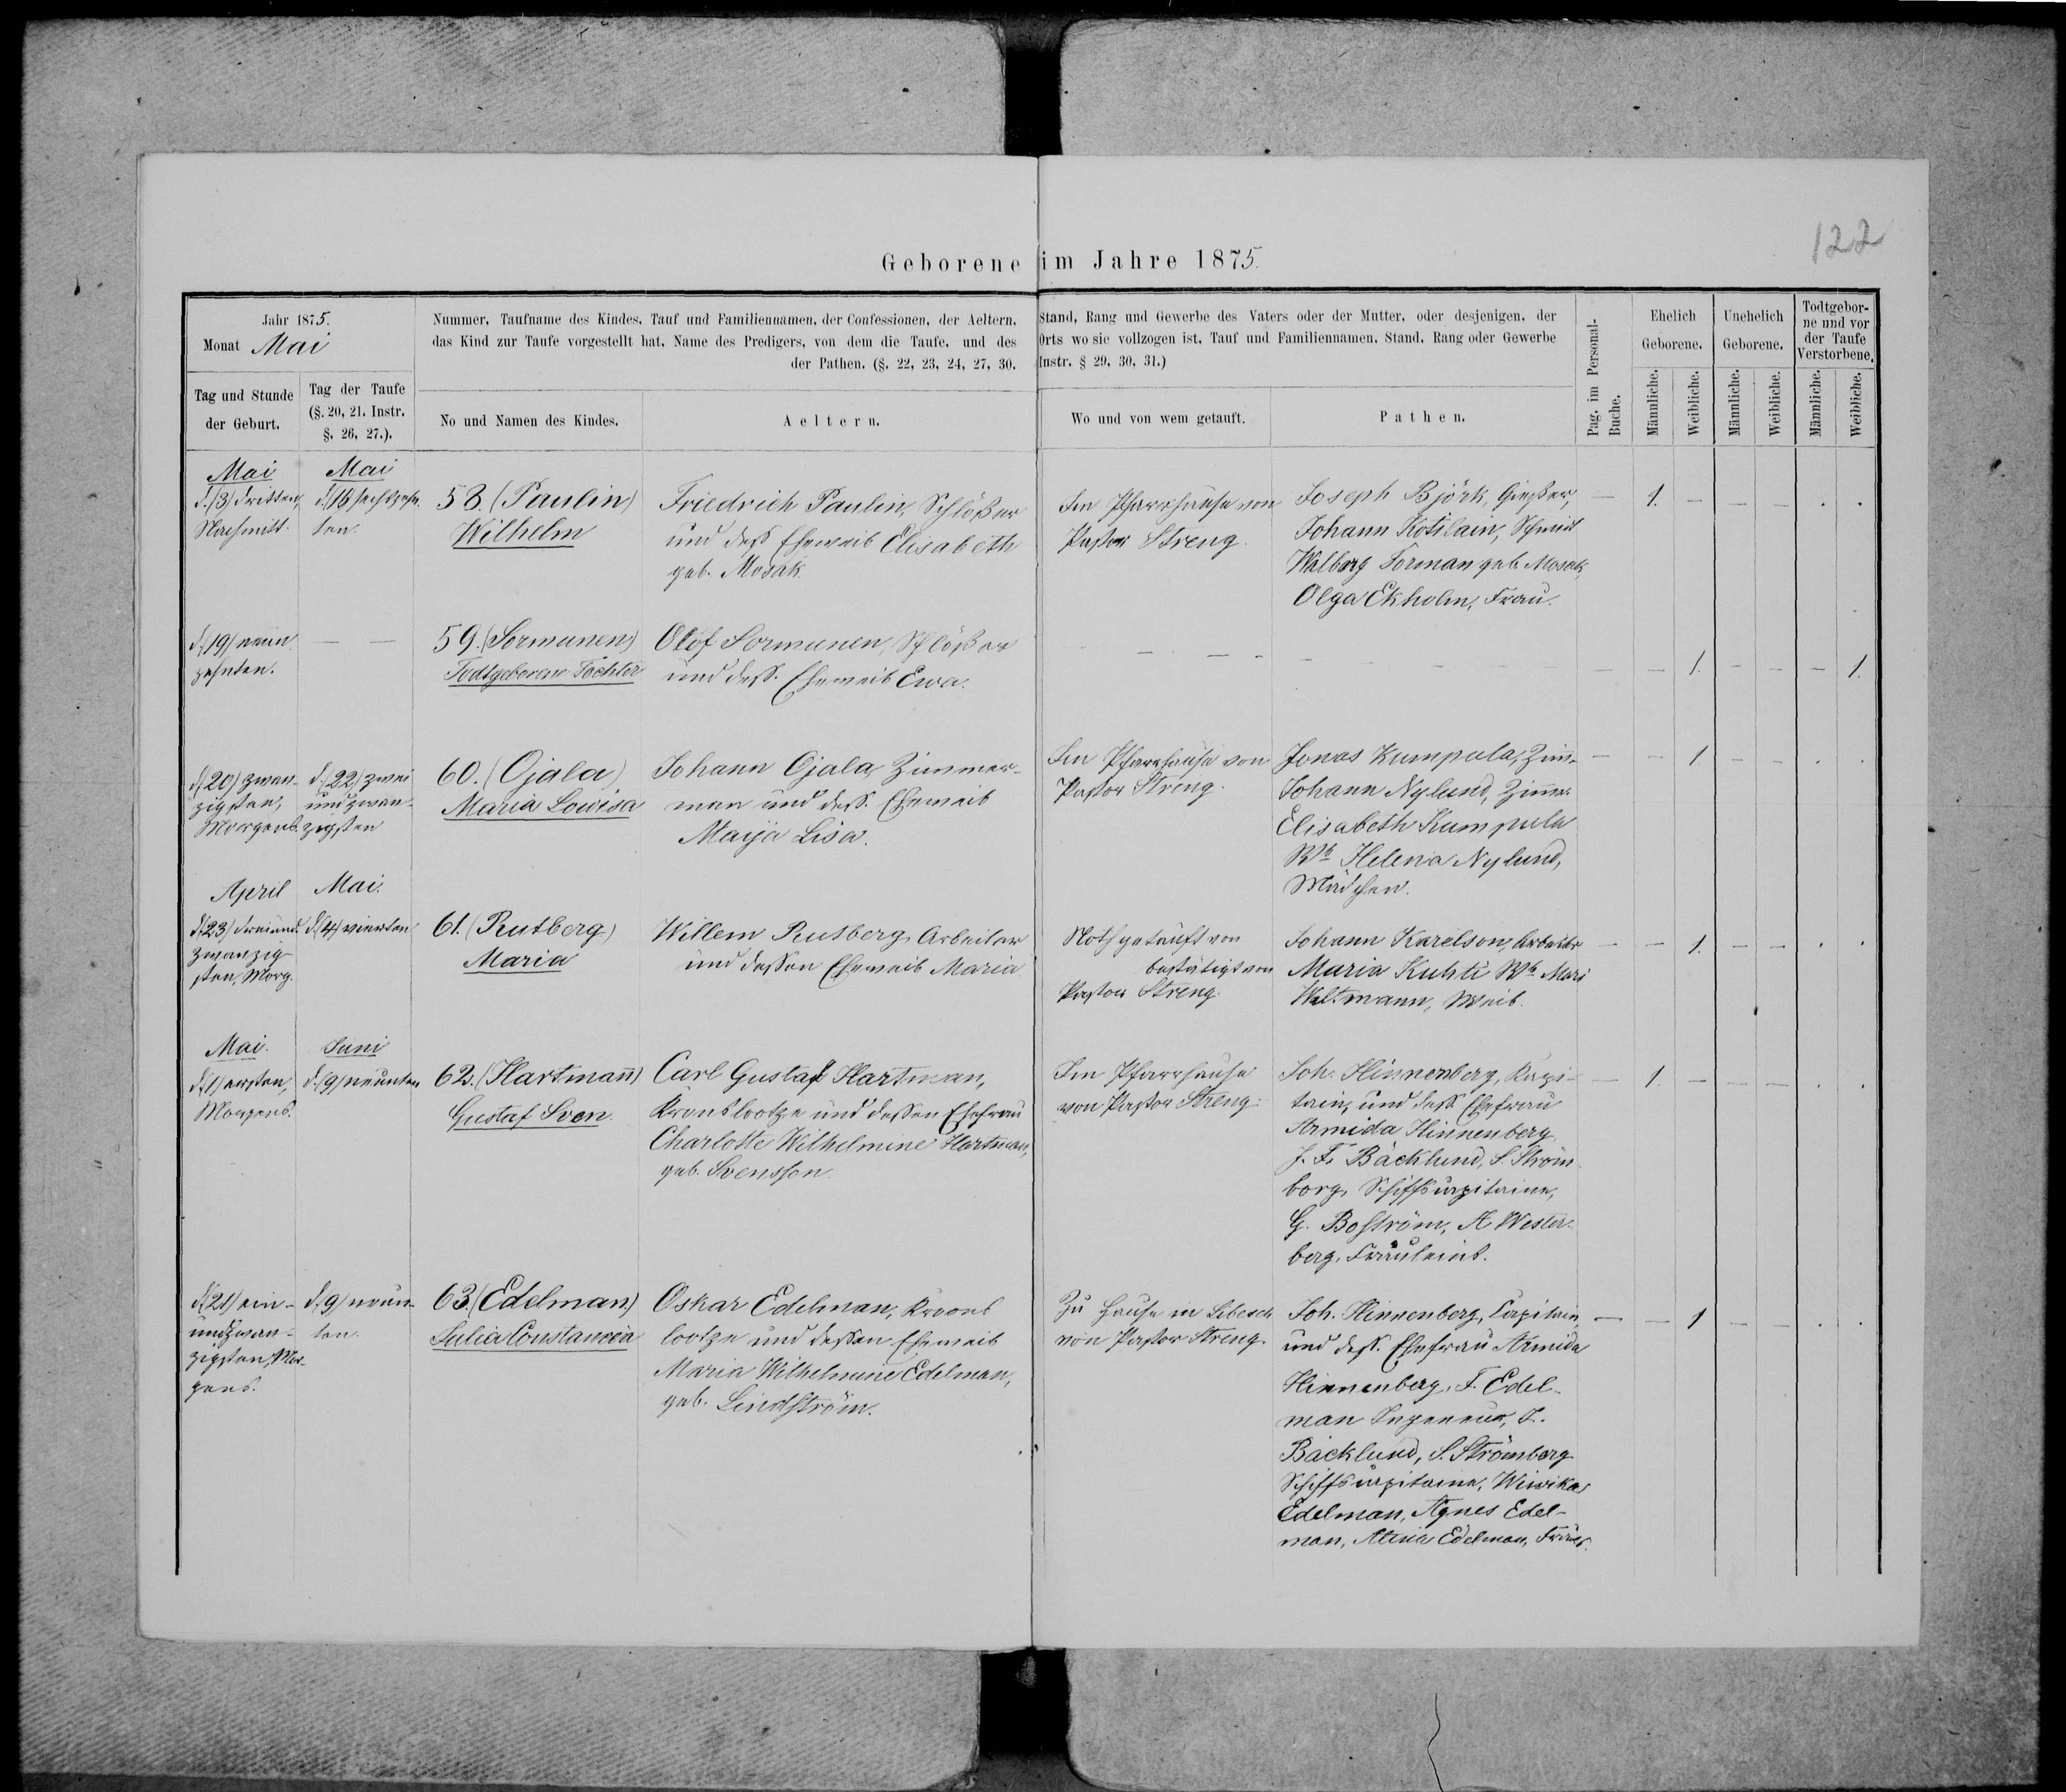 122
Geborene im Jahre 1875.
Jahr 1875.
Monat Mai
Tag und Stunde
der Geburt.
Tag der Taufe
(§. 20, 21. Instr.
§. 26, 27.).
Nummer, Taufname des Kindes, Tauf und Familiennamen, der Confessionen, der Aeltern, Stand, Rang und Gewerbe des Vaters oder der Mutter, oder desjenigen, der
das Kind zur Taufe vorgestellt hat, Name des Predigers, von dem die Taufe, und des Orts wo sie vollzogen ist, Tauf und Familiennamen, Stand, Rang oder Gewerbe
der Pathen. (§. 22, 23, 24, 27, 30. Instr. § 29, 30, 31.)
No und Namen des Kindes.
Aeltern.
Wo und von wem getauft.
Pathen.
Pag. im Personal-
Buche.
Ehelich
Geborene.
Unehelich
Geborene.
Todtgebor-
ne und vor
der Taufe
Verstorbene.
Männliche.
Weibliche.
Männliche.
Weibliche.
Männliche.
Weibliche.
Mai
d. (3) dritten,
Nachmitt.
Mai
d. (16) sechszehn-
ten.
58. (Paulin)
Wilhelm
Friedrich Paulin, Schlößer
und deß Eheweib Elisabeth
geb. Mosak.
Im Pfarrhause von
Pastor Streng.
Joseph Björk, Gießer,
Johann Kotilain, Schmid
Walborg Forman geb. Mosak,
Olga Ekholm, Frau.
— 1. — — — . .
d. (19) neun
zehnten.
— —
59. (Sormunen)
Todtgeborene Tochter
Olof Sormunen, Schlößer
und deß. Eheweib Ewa.
— — 1. — — — 1.
d. (20) zwan-
zigsten,
Morgens.
d. (22) zwei
und zwan-
zigsten
60. (Ojala)
Maria Lowisa
Johann Ojala, Zimmer-
man und deß. Eheweib
Maija Lisa.
Im Pfarrhause von
Pastor Streng.
Jonas Kumpula, Zim̄.
Johann Nylund, Zim̄.
Elisabeth Kumpula
Wb Helena Nylund,
Mädchen.
— — 1. — — . .
April
d. (23) dreiund-
zwanzig-
sten, Morg.
Mai.
d. (4) vierten
61. (Rutberg)
Maria
Willem Rutberg, Arbeiter
und dessen Eheweib Maria.
Nothgetauft von
bestätigt von
Pastor Streng.
Johann Karelson, Arbeiter
Maria Kuhti Wb Mari
Weltmann, Weib.
— — 1. — — . .
Mai.
d. (1) ersten,
Morgens.
Juni
d. (9) neunten
62. (Hartman̄)
Gustaf Sven.
Carl Gustaf Hartman,
Kronslootze und dessen Ehefrau
Charlotte Wilhelmine Hartman,
geb. Svensson.
Im Pfarrhause
von Pastor Streng.
Joh. Hinnenberg, Kapi-
tain, und deß. Ehefrau
Armida Hinnenberg
J. F. Bäcklund, S. Ström-
borg, Schiffscapitaine,
G. Boström, A. Wester-
berg, Fräuleins.
— 1. — — — . .
d. (21) ein-
undzwan-
zigsten, Mor-
gens.
d. (9) neun-
ten.
63. (Edelman)
Julia Constancia
Oskar Edelman, Krons
lootze und dessen Eheweib
Maria Wilhelmine Edelman,
geb. Lindström.
Zu Hause in
von Pastor Streng.
Joh. Hinnenberg, Capitain,
und deß. Ehefrau Armida
Hinnenberg, F. Edel-
man Ingeneur, J.
Bäcklund, S. Strömberg
Schiffscapitaine, Wiwika
Edelman, Agnes Edel-
man, Edelman,
— — 1 — — . .